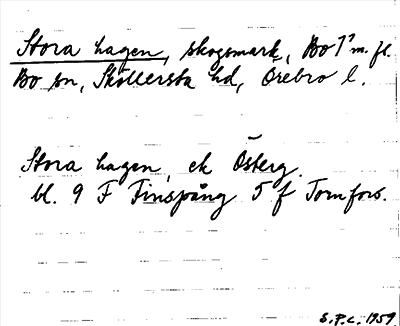 Stora hagen, skogsmark, Bo 1⁷ m. fl.
Bo sn, Sköllersta hd, Örebro l.
Stora hagen, ek Österg.
bl. 9 F Finspång 5 f Tornfors.
S.P.C. 1959